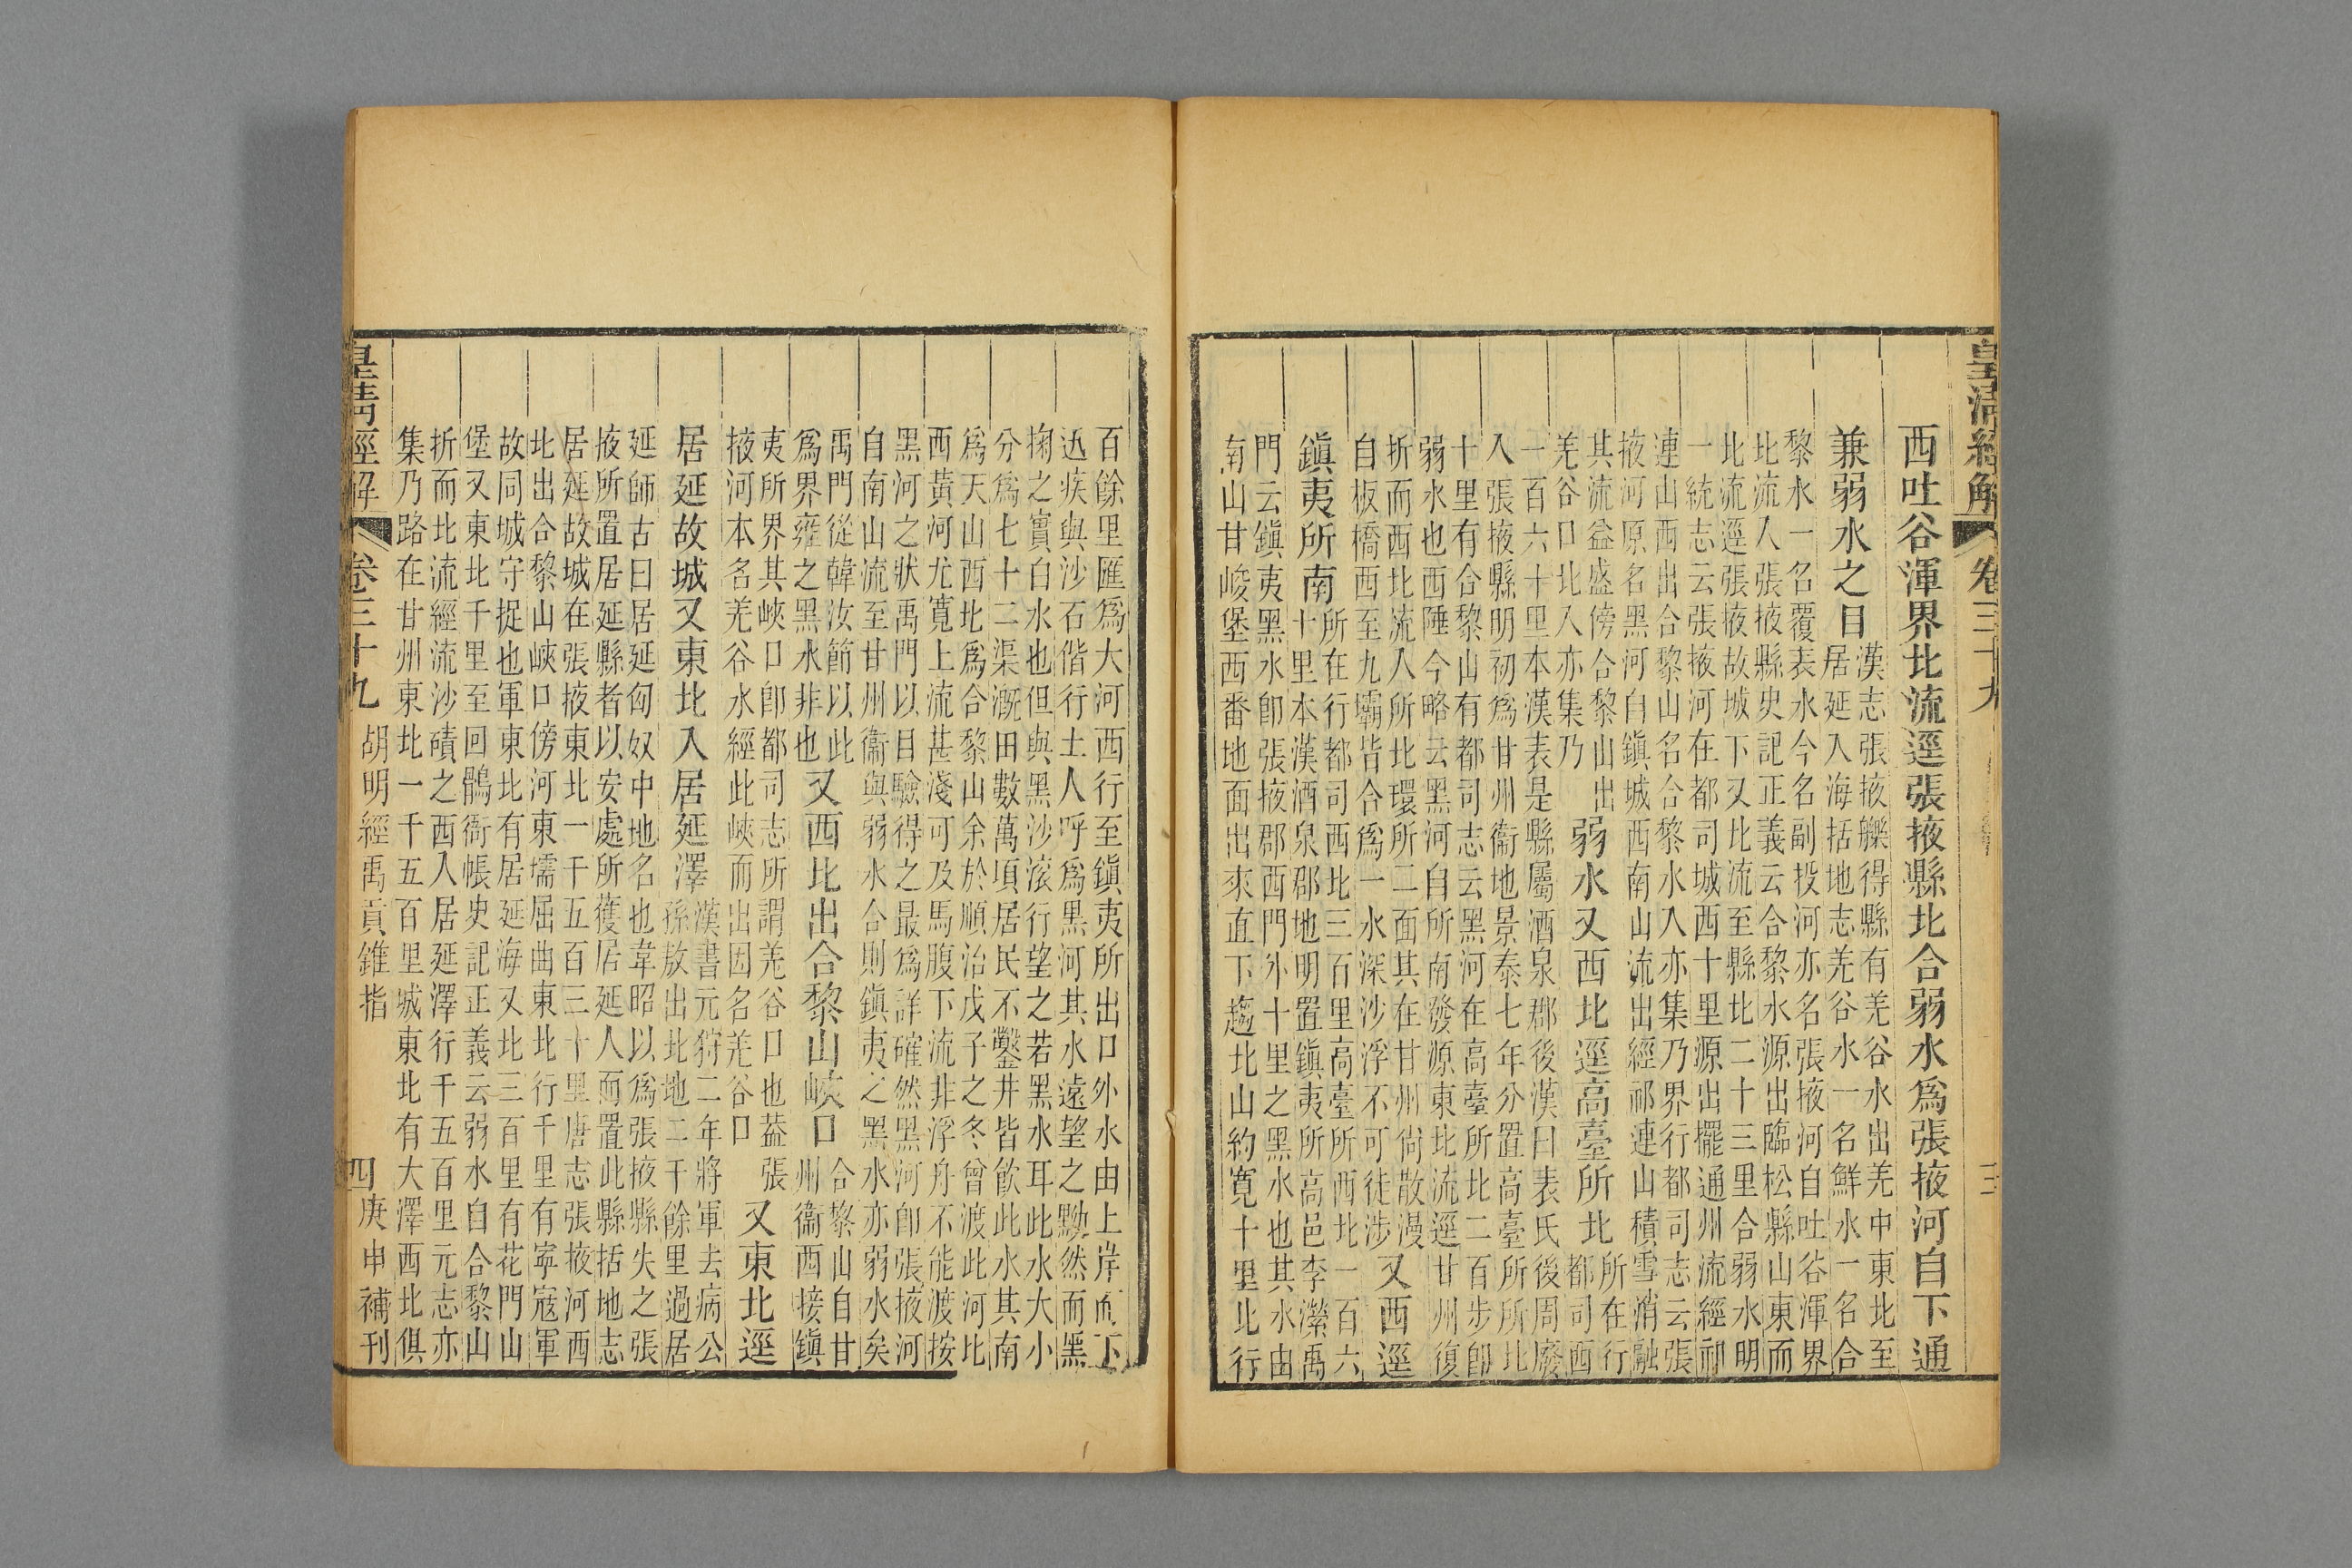 皇清經解
卷三十九
三
西吐谷渾界北流逕張掖縣北合弱水爲張掖河自下通
兼弱水之目
漢志張掖觻得縣有羌谷水出羌中東北至
居延入海括地志羌谷水一名鮮水一名合
黎水一名覆表水今名副投河亦名張掖河自吐谷渾界
北流入張掖縣史記正義云合黎水源出臨松縣山東而
北流逕張掖故城下又北流至縣北二十三里合弱水明
一統志云張掖河在都司城西十里源出擺通州流經祁
連山西出合黎山名合黎水入亦集乃界行都司志云張
掖河原名黑河自鎮城西南山流出經祁連山積雪消融
其流益盛傍合黎山出
羌谷口北入亦集乃
弱水又西北逕高臺所北
所在行
都司西
一百六十里本漢表是縣屬酒泉郡後漢曰表氏後周廢
入張掖縣明初爲甘州衞地景泰七年分置高臺所所北
十里有合黎山有都司志云黑河在高臺所北二百步卽
弱水也西陲今略云黑河自所南發源東北流逕甘州復
折而西北流入所北環所二面其在甘州尙散漫
自板橋西至九壩皆合爲一水深沙浮不可徒涉
又西逕
鎮夷所南
所在行都司西北三百里高臺所西北一百六
十里本漢酒泉郡地明置鎮夷所高邑李濚禹
門云鎮夷黑水卽張掖郡西門外十里之黑水也其水由
南山甘峻堡西番地面出來直下趨北山約寬十里北行
百餘里匯爲大河西行至鎮夷所出口外水由上岸而下
迅疾與沙石偕行土人呼爲黑河其水遠望之黝然而黑
掬之實白水也但與黑沙滾行望之若黑水耳此水大小
分爲七十二渠漑田數萬項居民不鑿井皆飮此水其南
爲天山西北爲合黎山余於順治戊子之冬曾渡此河比
西黃河尤寬上流甚淺可及馬腹下流非浮舟不能渡按
黑河之狀禹門以目驗得之最爲詳確然黑河卽張掖河
自南山流至甘州衞與弱水合則鎮夷之黑水亦弱水矣
禹門從韓汝節以此
爲界雍之黑水非也
又西北出合黎山峽口
合黎山自甘
州衞西接鎮
夷所界其峽口卽都司志所謂羌谷口也葢張
掖河本名羌谷水經此峽而出因名羌谷口
又東北逕
居延故城又東北入居延澤
漢書元狩二年將軍去病公
孫敖出北地二千餘里過居
延師古曰居延匈奴中地名也韋昭以爲張掖縣失之張
掖所置居延縣者以安處所獲居延人而置此縣括地志
居延故城在張掖東北一千五百三十里唐志張掖河西
北出合黎山峽口傍河東壖屈曲東北行千里有寧寇軍
故同城守捉也軍東北有居延海又北三百里有花門山
堡又東北千里至回鶻衙帳史記正義云弱水自合黎山
折而北流經流沙磧之西入居延澤行千五百里元志亦
集乃路在甘州東北一千五百里城東北有大澤西北俱
皇清經解
卷三十九
胡明經禹貢錐指
四
庚申補刊